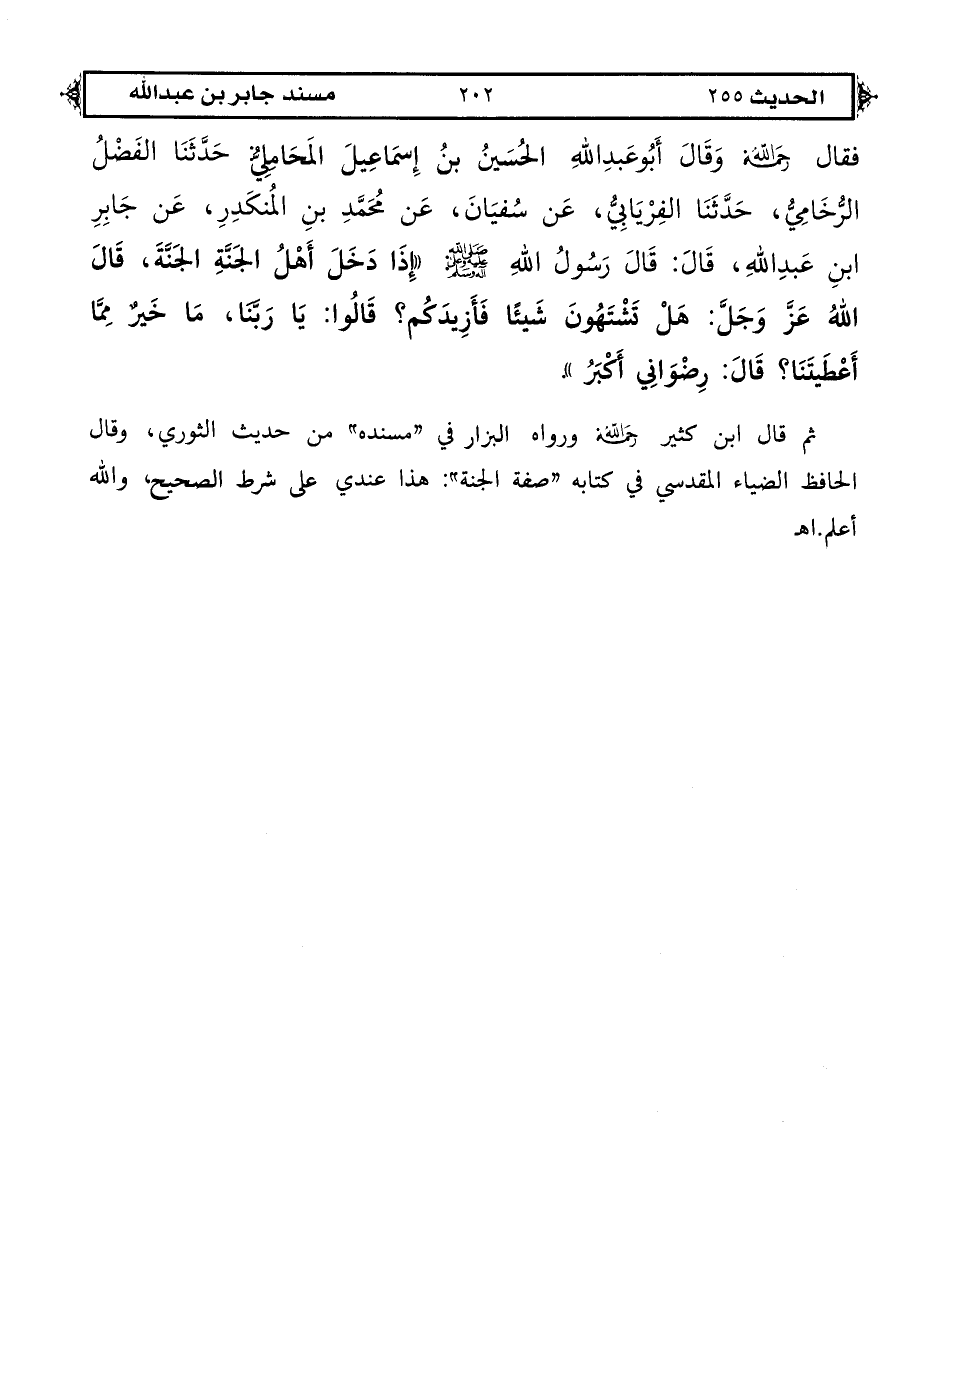 الحديث ٢٥٥ ٢٠٢ مسند جابر بن عبدالله
فقال رَحِمَهُ اللَّهُ وَقَالَ أَبُوعَبدِاللهِ الحُسَينُ بنُ إِسمَاعِيلَ المَحَامِلِيُّ حَدَّثَنَا الفَضْلُ
الرُّخَامِيُّ، حَدَّثَنَا الفِرْيَابِيُّ، عَن سُفيَانَ، عَن مُحَمَّدِ بنِ المُنكَدِرِ، عَن جَابِرِ
ابنِ عَبدِاللهِ، قَالَ: قَالَ رَسُولُ اللهِ ﷺ «إِذَا دَخَلَ أَهْلُ الجَنَّةِ الجَنَّةَ، قَالَ
اللهُ عَزَّ وَجَلَّ: هَلْ تَشْتَهُونَ شَيئًا فَأَزِيدَكُم؟ قَالُوا: يَا رَبَّنَا، مَا خَيرٌ مِمَّا
أَعْطَيتَنَا؟ قَالَ: رِضْوَانِي أَكْبَرُ».
ثم قال ابن كثير رَحِمَهُ اللَّهُ ورواه البزار في "مسنده" من حديث الثوري، وقال
الحافظ الضياء المقدسي في كتابه "صفة الجنة": هذا عندي على شرط الصحيح، والله
أعلم.اهـ